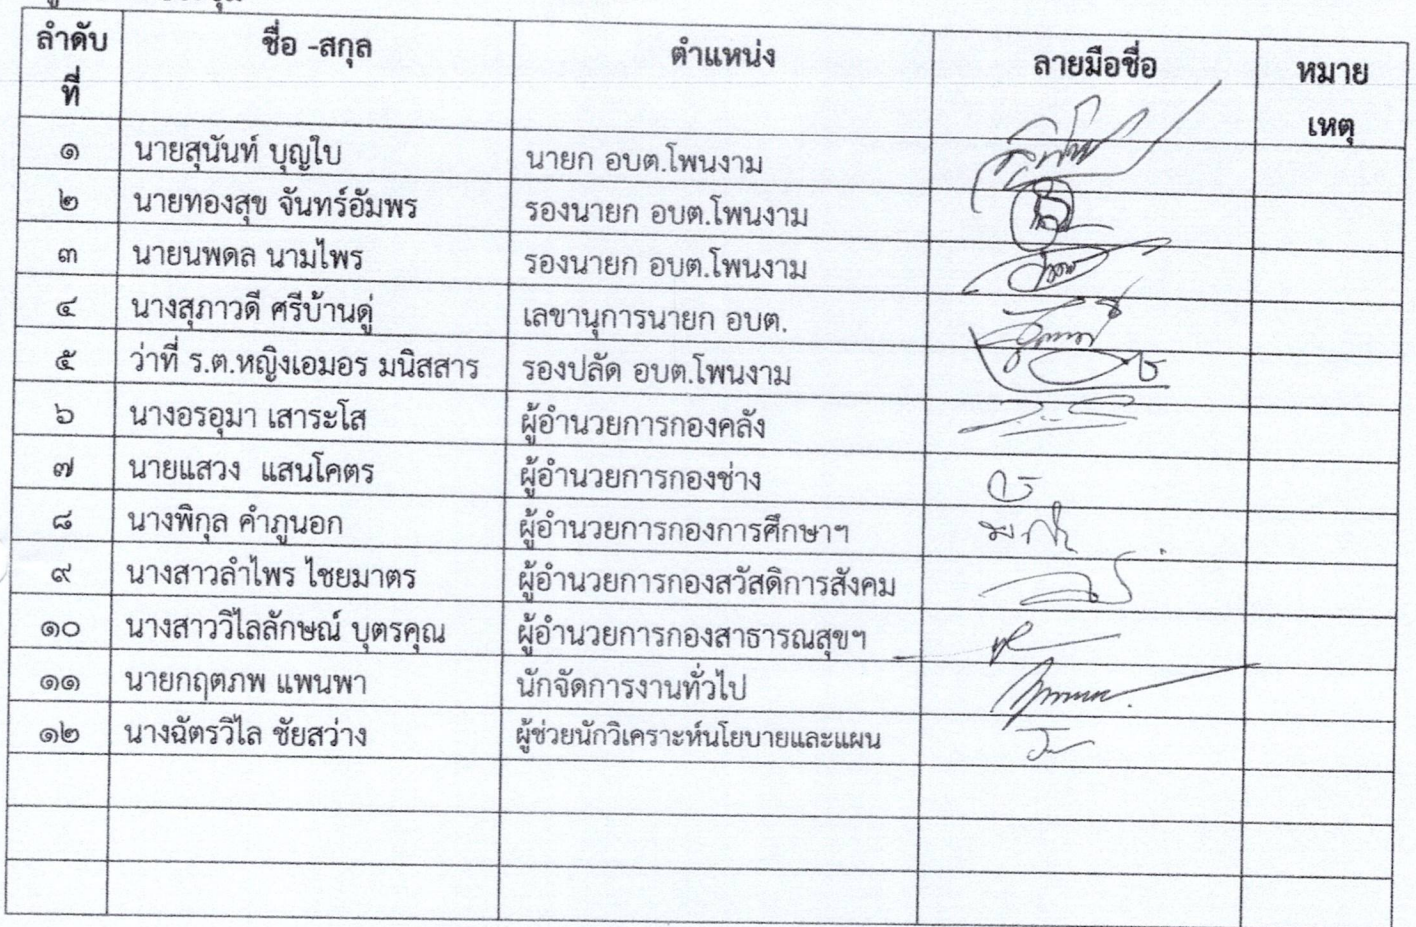 ลำดับที่ ชื่อ -สกุล ตำแหน่ง ลายมือชื่อ หมายเหตุ
๑ นายสุนันท์ บุญใบ นายก อบต.โพนงาม
๒ นายทองสุข จันทร์อัมพร รองนายก อบต.โพนงาม
๓ นายนพดล นามไพร รองนายก อบต.โพนงาม
๔ นางสุภาวดี ศรีบ้านดู่ เลขานุการนายก อบต.
๕ ว่าที่ ร.ต.หญิงเอมอร มนิสสาร รองปลัด อบต.โพนงาม
๖ นางอรอุมา เสาระโส ผู้อำนวยการกองคลัง
๗ นายแสวง แสนโคตร ผู้อำนวยการกองช่าง
๘ นางพิกุล คำภูนอก ผู้อำนวยการกองการศึกษาฯ
๙ นางสาวลำไพร ไชยมาตร ผู้อำนวยการกองสวัสดิการสังคม
๑๐ นางสาววิไลลักษณ์ บุตรคุณ ผู้อำนวยการกองสาธารณสุขฯ
๑๑ นายกฤตภพ แพนพา นักจัดการงานทั่วไป
๑๒ นางฉัตรวิไล ชัยสว่าง ผู้ช่วยนักวิเคราะห์นโยบายและแผน